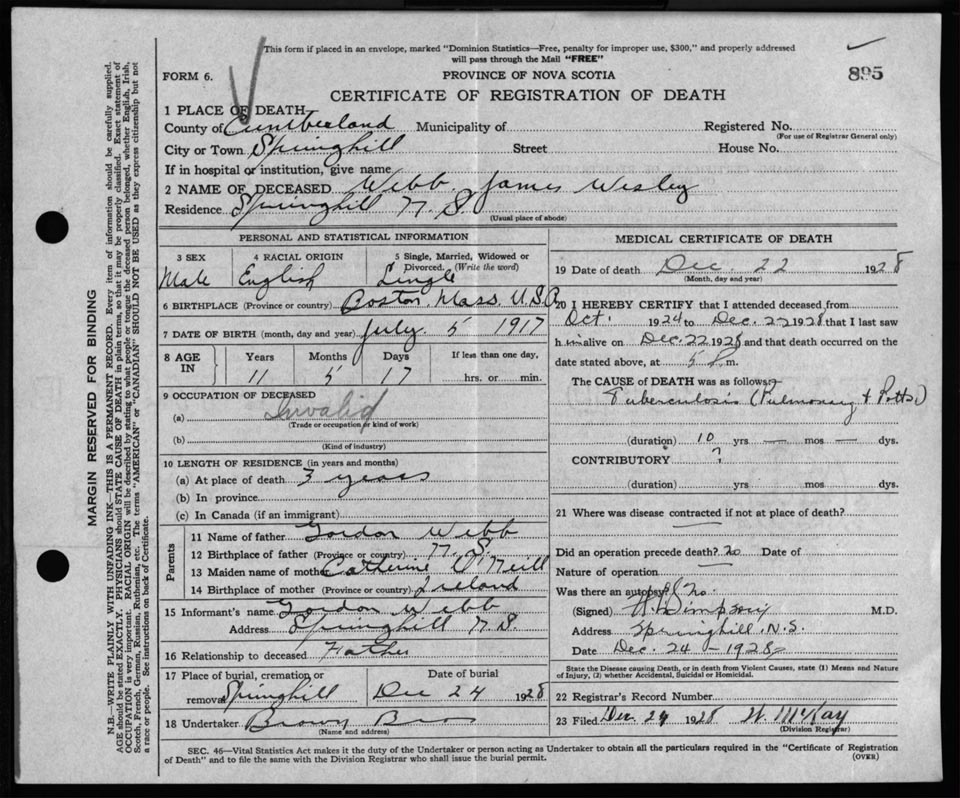 This form if placed in an envelope, marked "Dominion Statistics—Free, penalty for improper use, $300," and properly addressed
will pass through the Mail "FREE"
895
FORM 6.
PROVINCE OF NOVA SCOTIA
CERTIFICATE OF REGISTRATION OF DEATH
1 PLACE OF DEATH
County of Cumberland Municipality of Registered No.
(For use of Registrar General only)
City or Town Springhill Street House No.
If in hospital or institution, give name
2 NAME OF DECEASED Webb James Wesley
Residence Springhill N. S.
(Usual place of abode)
PERSONAL AND STATISTICAL INFORMATION
3 SEX 4 RACIAL ORIGIN 5 Single, Married, Widowed or Divorced. (Write the word)
Male English Single
6 BIRTHPLACE (Province or country) Boston, Mass. U.S.A.
7 DATE OF BIRTH (month, day and year) July 5 1917
8 AGE IN Years Months Days If less than one day,
11 5 17 hrs. or min.
9 OCCUPATION OF DECEASED
(a) Invalid
(Trade or occupation or kind of work)
(b)
(Kind of industry)
10 LENGTH OF RESIDENCE (in years and months)
(a) At place of death 3 years
(b) In province
(c) In Canada (if an immigrant)
Parents
11 Name of father Gordon Webb
12 Birthplace of father (Province or country) N. S.
13 Maiden name of mother Catherine O'Neill
14 Birthplace of mother (Province or country) Ireland
15 Informant's name Gordon Webb
Address Springhill N. S.
16 Relationship to deceased Father
17 Place of burial, cremation or removal Springhill
Date of burial
Dec 24 1928
18 Undertaker Brown Bros
(Name and address)
MEDICAL CERTIFICATE OF DEATH
19 Date of death Dec. 22 1928
(Month, day and year)
20 I HEREBY CERTIFY that I attended deceased from
Oct. 1924 to Dec. 22 1928 that I last saw
him alive on Dec. 22 1928 and that death occurred on the
date stated above, at 5 P. m.
The CAUSE of DEATH was as follows,
Tuberculosis (Pulmonary & Potts)
(duration) 10 yrs — mos — dys.
CONTRIBUTORY ?
(duration) yrs. mos. dys.
21 Where was disease contracted if not at place of death?
Did an operation precede death? no Date of
Nature of operation
Was there an autopsy? No.
(Signed) Simpson M.D.
Address Springhill, N.S.
Date Dec. 24 - 1928
State the Disease causing Death, or in death from Violent Causes, state (1) Means and Nature
of Injury, (2) whether Accidental, Suicidal or Homicidal.
22 Registrar's Record Number
23 Filed Dec. 24 1928 W McKay
(Division Registrar)
SEC. 46—Vital Statistics Act makes it the duty of the Undertaker or person acting as Undertaker to obtain all the particulars required in the "Certificate of Registration
of Death" and to file the same with the Division Registrar who shall issue the burial permit.
(OVER)
MARGIN RESERVED FOR BINDING
N.B.—WRITE PLAINLY WITH UNFADING INK—THIS IS A PERMANENT RECORD. Every item of information should be carefully supplied.
AGE should be stated EXACTLY. PHYSICIANS should STATE CAUSE OF DEATH in plain terms, so that it may be properly classified. Exact statement of
OCCUPATION is very important. RACIAL ORIGIN will be described by stating to what people or tongue the deceased person belonged, whether English, Irish,
Scotch, French, German, Russian, Ruthenian, etc. The terms "AMERICAN" or "CANADIAN" SHOULD NOT BE USED as they express citizenship but not
a race or people. See instructions on back of Certificate.